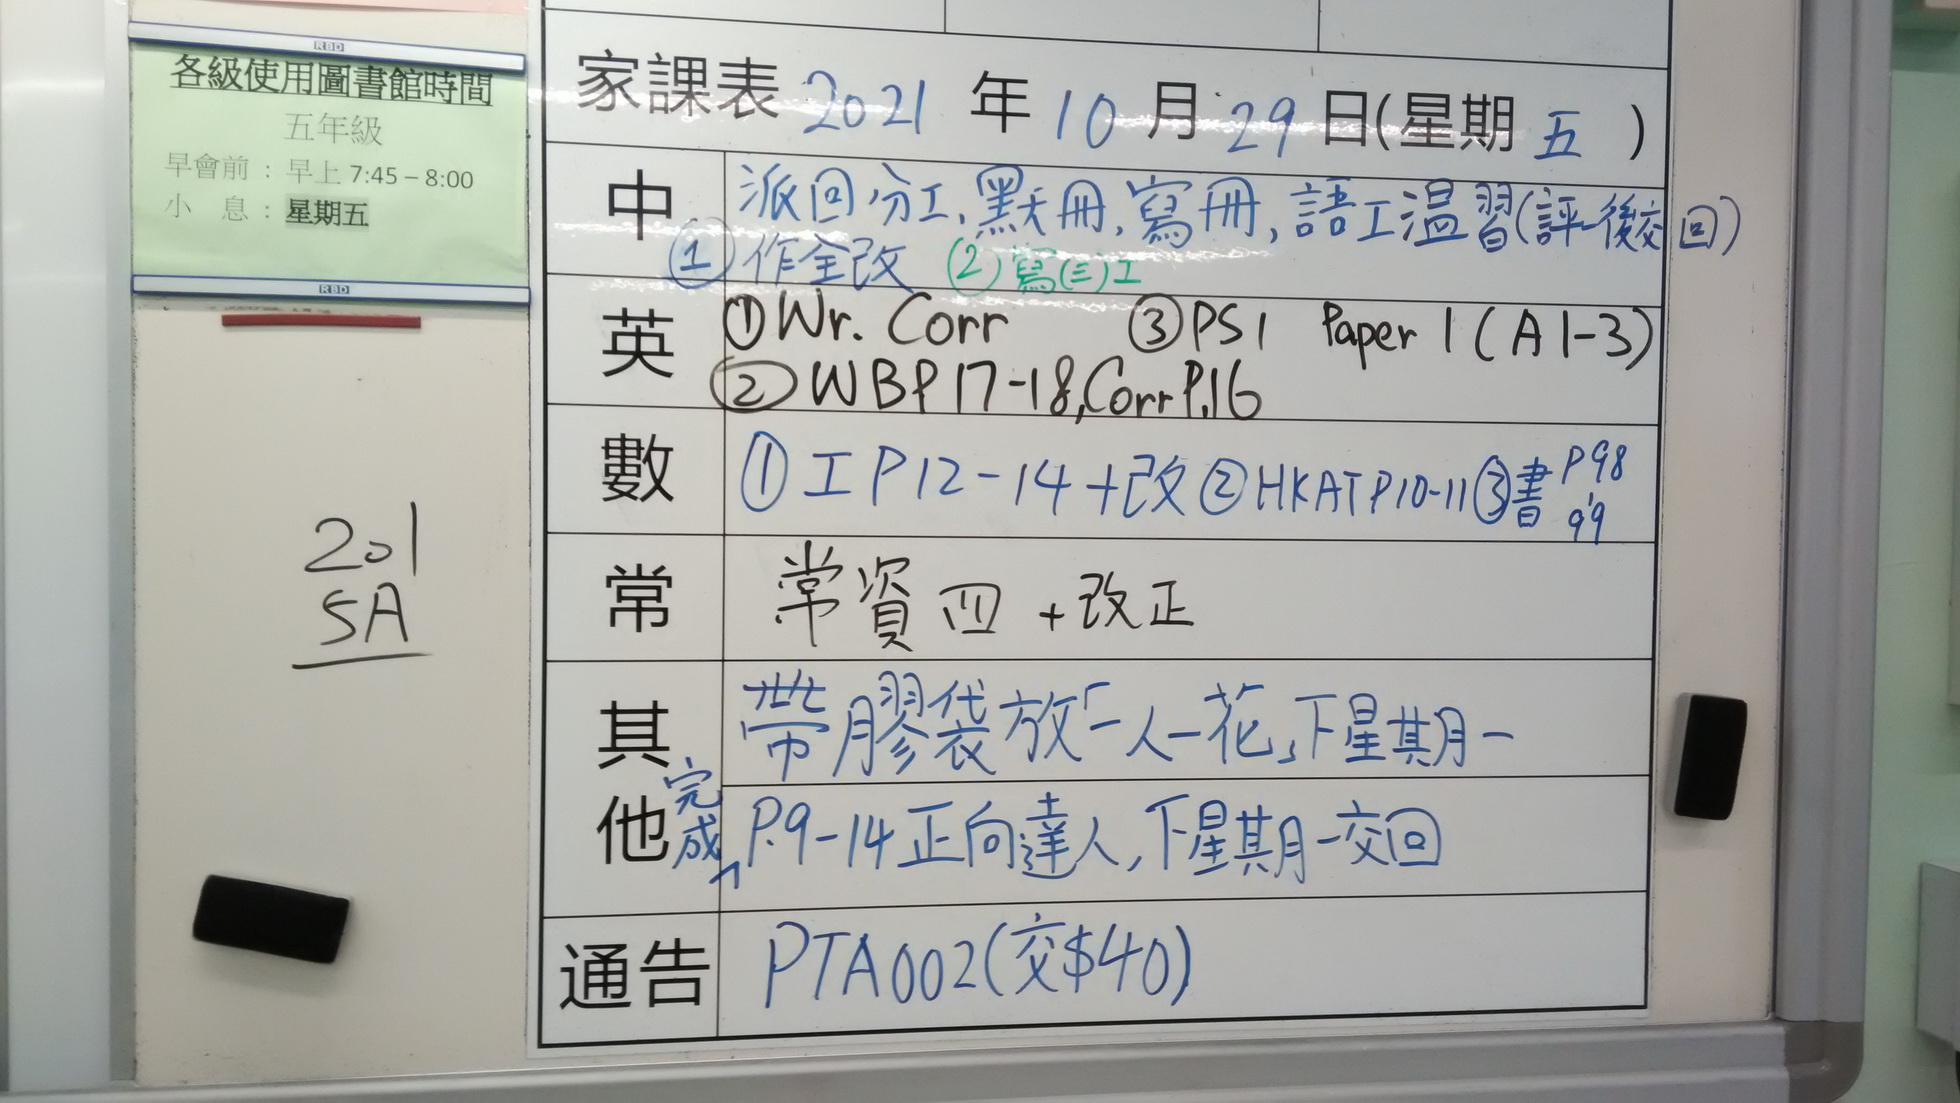 RBD
各級使用圖書館時間
五年級
早會前：早上 7:45 – 8:00
小　息：星期五
RBD
201
5A
家課表 2021 年 10 月 29 日(星期 五 )
中
派回分工,默冊,寫冊,語工溫習(評一後交回)
①作全改 ②寫(三)工
英
①Wr. Corr ③PS1 Paper 1 (A1-3)
②WBP17-18,Corr P.16
數
①工P12-14+改②HKATP10-11③書P98,99
常
常資四+改正
其他
帶膠袋放「一人一花」下星期一
完成
P.9-14正向達人,下星期一交回
通告
PTA002(交$40)